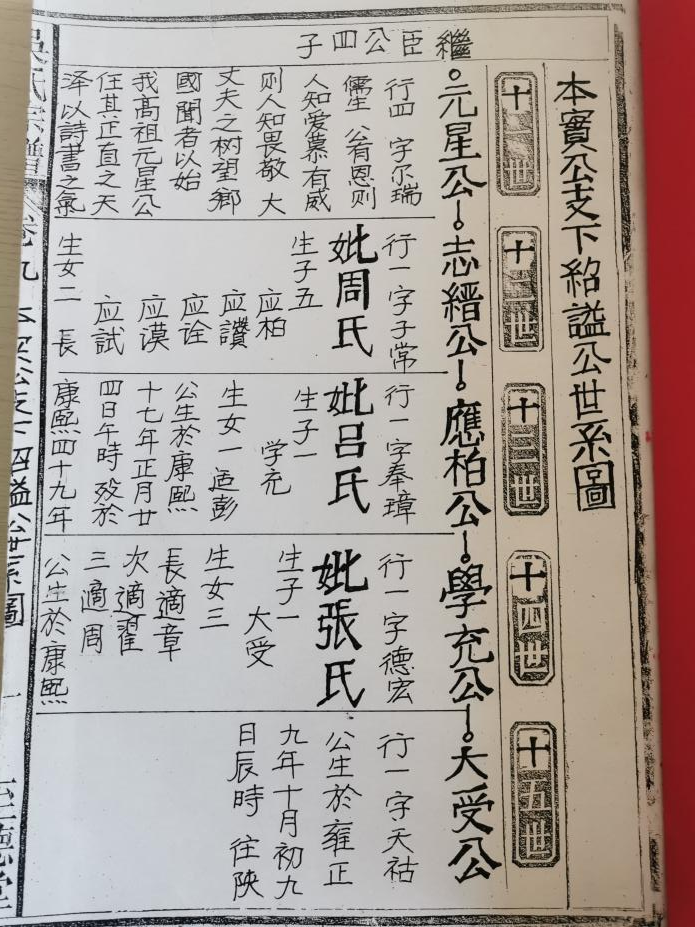 本實公支下紹謚公世系圖
十一世
十二世
十三世
十四世
十五世
繼臣公四子
元星公
志縉公
應柏公
學充公
大受公
行四 字尔瑞
儒生 公有恩则
人知爱慕有威
则人知畏敬 大
丈夫之树望鄉
國聞者以始
我高祖元星公
任其正直之天
泽以詩書之氣
行一字子常
妣周氏
生子五
应柏
应讚
应诠
应漠
应試
生女二 長
行一字奉璋
妣吕氏
生子一
学充
生女一 适彭
公生於康熙
十七年正月廿
四日午時 殁於
康熙四十九年
行一 字德宏
妣張氏
生子一
大受
生女三
長適章
次適翟
三適周
公生於康熙
行一字天祜
公生於雍正
九年十月初九
日辰時 往陕
吴氏宗譜
卷九
本实公支下绍謚公世系圖
一
至德堂